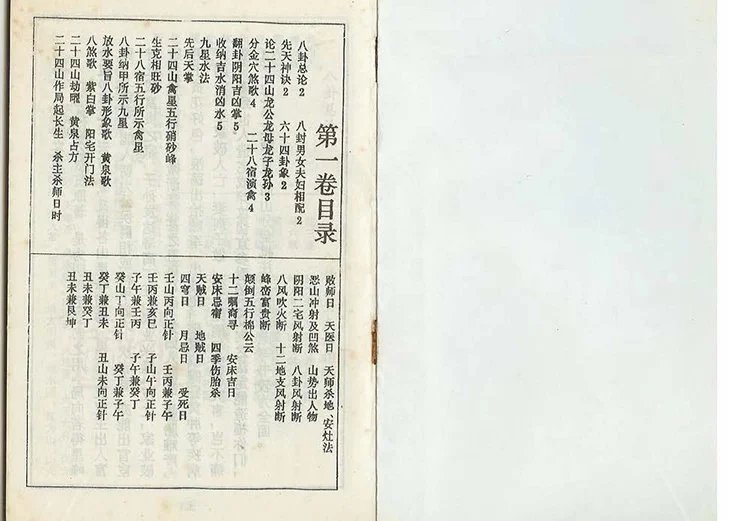 第一卷目录
八卦总论2 八封男女夫妇相配2
先天神诀2 六十四卦象2
论二十四山龙公龙母龙子龙孙3
分金穴煞歌4 二十八宿演禽4
翻卦阴阳吉凶掌5
收纳吉水消凶水5
九星水法
先后天掌
二十四山禽星五行硝砂峰
生克相旺砂
二十八宿五行所示禽星
八卦纳甲所示九星
放水要旨八卦形象歌 黄泉歌
八煞歌 紫白掌 阳宅开门法
二十四山劫曜 黄泉占方
二十四山作局起长生 杀主杀师日时
败师日 天医日 天师杀地、安灶法
恶山冲射及凹煞 山势出人物
阴阳二宅风射断 八卦风射断
八风吹火断 十二地支风射断
峰峦富贵断
颠倒五行棉公云
十二嘱裔寻 安床吉日
安床忌 四季伤胎杀
天贼日 地贼日
四穹日 月忌日 受死日
壬山丙向正针 壬丙兼子午
壬丙兼亥巳 子山午向正针
子午兼壬丙 子午兼癸丁
癸山丁向正针 癸丁兼子午
癸丁兼丑未 丑山未向正针
丑未兼癸丁
丑未兼艮坤